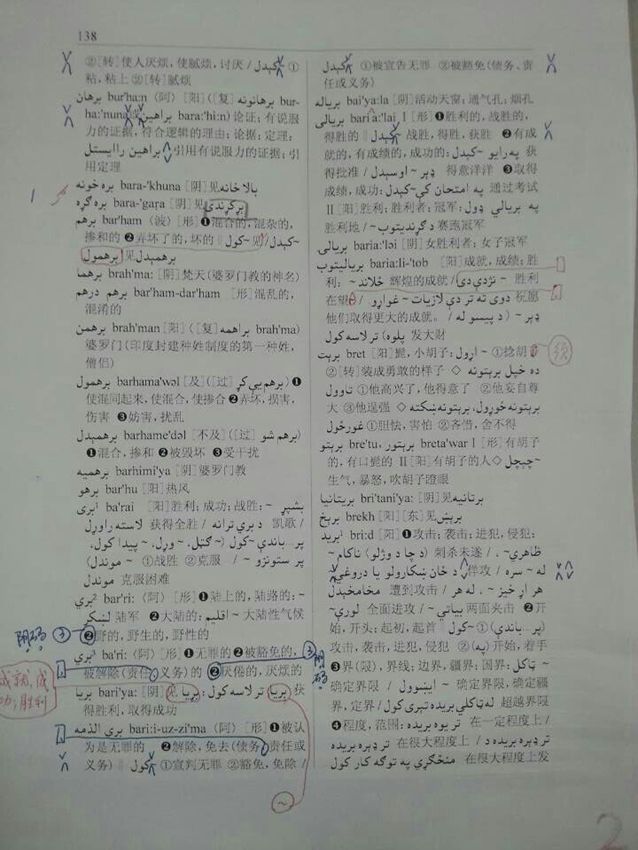 138
②[转]使人厌烦,使腻烦,讨厌 / کېدل ~ ①
粘,粘上 ②[转]腻烦
برهان bur'ha:n (阿) [阳] ([复] برهانونه bur-
ha:'nuna, براهين bara:'hi:n) 论证; 有说服
力的证据, 符合逻辑的理由; 论据; 定理:
براهين راايستل 引用有说服力的证据; 引
用定理
بره خونه bara-'khuna [阴] 见 بالاخانه
بره گړه bara-'gara [阴] 见 برگړندی
برهم bar'ham (波) [形] ❶混合的,混杂的,
掺和的 ❷弄坏了的,坏的 ‖ کول ~ 见
برهمول / کېدل ~ 见 برهمېدل
برهما brah'ma: [阴] 梵天(婆罗门教的神名)
برهم درهم bar'ham-dar'ham [形] 混乱的,
混淆的
برهمن brah'man [阳] ([复] براهمه brah'ma)
婆罗门(印度封建种姓制度的第一种姓,
僧侣)
برهمول barhama'wəl [及] ([过] برهم يې کړ) ❶
使混同起来,使混合,使掺合 ❷弄坏,损害,
伤害 ❸妨害,扰乱
برهمېدل barhame'dəl [不及] ([过] برهم شو)
❶混合,掺和 ❷被毁坏 ❸受干扰
برهميه barhimi'ya [阴] 婆罗门教
برهو bar'hu [阳] 热风
بری¹ ba'rai [阳] 胜利; 成功; 战胜: ~ بشپړ
获得全胜 / د بري ترانه 凯歌 / لاسته راوړل
پر... باندې کول ~ گټل، ~ وړل، ~ پيدا کول،
موندل ~ ①战胜 ②克服 / پر ستونزو ~
موندل 克服困难
بري² bar'ri: (阿) [形] ❶陆上的,陆路的: ~
لښکر 陆军 ❷大陆的: اقليم ~ 大陆性气候
❷野的,野生的,野性的
بري³ ba'ri: (阿) [形] ❶无罪的 ❷被豁免的,
被解除(责任、义务)的 ❷厌倦的,厌烦的
بريا bari'ya: [阴] 见 بريا: ترلاسه کول (بريا) 获
得胜利,取得成功
成就,成
功;胜利
بري الذمه bari:i-uz-zi'ma (阿) [形] ❶被认
为是无罪的 ❷解除,免去(债务、责任或
义务) ‖ کول ~ ①宣判无罪 ②豁免,免除 /
کېدل ~ ①被宣告无罪 ②被豁免(债务、责
任或义务)
برياله bai'ya:la [阴] 活动天窗; 通气孔; 烟孔
بريالی bari'a:'lai Ⅰ [形] ❶胜利的,战胜的,
得胜的 کېدل ~ 战胜,得胜,获胜 ❷有成
就的,有成绩的,成功的: په رايو ~ کېدل 获
得批准 / ډېر ~ اوسېدل 得意洋洋 ❸取得
成绩,成功: په امتحان کې ~ کېدل 通过考试
Ⅱ [阳] 胜利; 胜利者; 冠军: په بريالي ډول
胜利地 / د گړندیتوب ~ 赛跑冠军
بريالۍ baria:'ləi [阴] 女胜利者; 女子冠军
برياليتوب baria:li-'tob [阳] 成就,成绩; 胜
利: ځلاند ~ 辉煌的成就 / نژدې دی ~ 胜利
在望 / دوی ته تر دې لازيات ~ غواړو 祝愿
他们取得更大的成就。 / (د پيسو له
پلوه) ډېر ~ ترلاسه کول 发大财
برېت bret [阳] 髭,小胡子: اړول ~ ①捻胡
②[转]装成勇敢的样子 ◇ ده خپل برېتونه
تاوول ①他高兴了,他得意了 ②他妄自尊
大 ③他逞强 ◇ برېتونه ځوړول، برېتونه ښکته
غورځول ①胆怯,害怕 ②吝惜,舍不得
须
برېتو bre'tu, برېتور breta'war Ⅰ [形] 有胡子
的,有口髭的 Ⅱ [阳] 有胡子的人 ◇ چيچل ~
生气,暴怒,吹胡子瞪眼
بريتانيا bri'tani'ya: [阴] 见 برتانيه
برېخ brekh [阳] [东] 见 برېښ
بريد¹ bri:d [阳] ❶攻击; 袭击; 进犯,侵犯:
ناکام ~ (د چا د وژلو) 刺杀未遂 / ظاهري ~،
د ځان ښکارولو يا دروغي ~ 佯攻 / له ~ سره
مخامخېدل 遭到攻击 / له هر ~ / هر اړخيز ~
全面进攻 / بياتي ~ 两面夹击 ❷开
始,开头; 起初,起首 ‖ کول ~ ① (پر... باندې)
攻击,袭击,进犯,侵犯 ② (په) 开始,着手
❸界(限),界线; 边界,疆界; 国界: ټاکل ~
确定界限 / ايښوول ~ 确定界限,确定疆
界,定界 / له ټاکلي بريده تېری کول 超越界限
❹程度,范围: تر يوه بريده 在一定程度上 /
تر ډېره بريده 在很大程度上 / تر ډېره بريده د
منځگړي په توگه کار کول 在很大程度上发
2